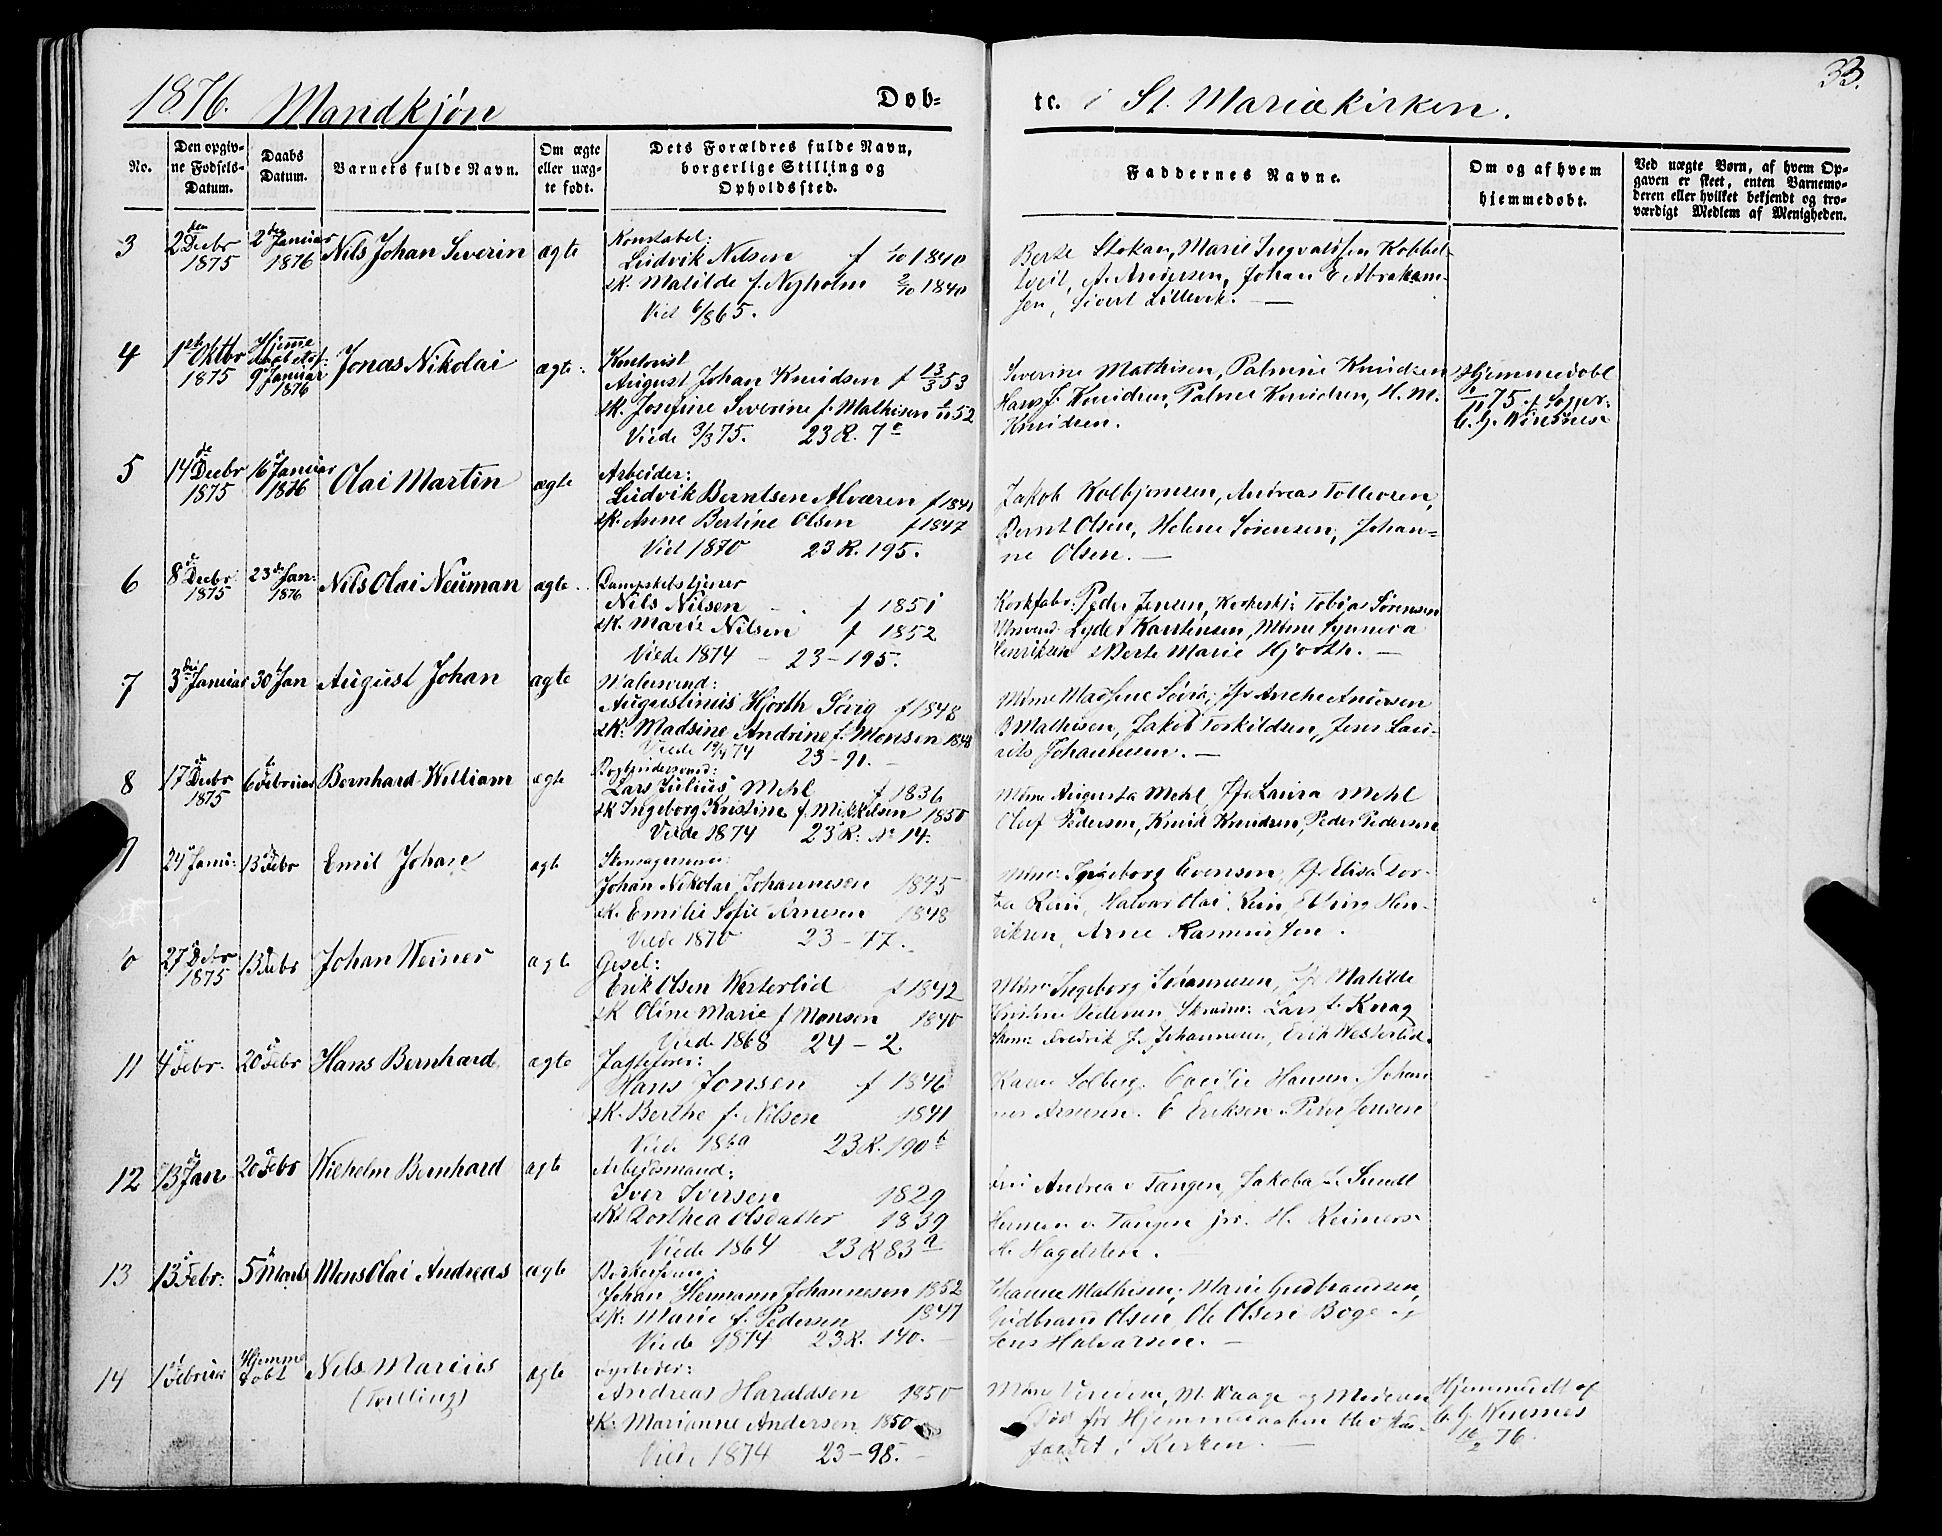 1876. Mandkjøn Døb-
te. i St. Mariækirken. 33.
No.
Den opgiv-
ne Fødsels-
Datum.
Daabs
Datum.
Barnets fulde Navn.
Om ægte
eller uæg-
te født.
Dets Forældres fulde Navn,
borgerlige Stilling og
Opholdssted.
Faddernes Navne.
Om og af hvem
hjemmedøbt.
Ved uægte Børn, af hvem Op-
gaven er skeet, enten Barnemo-
deren eller hvilket bekjendt og tro-
værdigt Medlem af Menigheden.
3 2den Decbr 1875 2den Januar 1876 Nils Johan Severin ægte
Konstabel:
Ludvik Nilsen f 1840
sk. Matilde f. Nyholm 1840
Vied 1865.
Berte Stokan, Marie Ingvaldsen Kobbel-
tveit, A. Andersen, Johan E. Abraham-
sen, Sivert Lillevik. —
4 1st Oktbr 1875 Hjemme 9 Januar 1876 Jonas Nikolai ægte.
August Johan Knudsen f 13/3 53
sk. Josefine Severine f. Mathisen 52
Viede 3/3 75. 23 R. 7
Severine Mathisen, Palmine Knudsen
Hans J. Knudsen, Palme Knudsen, H. M.
Knudsen.
Hjemmedøbt
75 af
C. G. Winsnes
5 14 Decbr 1875 16 Januar 1876 Olai Martin ægte
Arbeider:
Ludvik Berntsen Alværen f 1841
sk. Anne Bertine Olsen f 1847
Vied 1870 23 R. 195.
Jakob Kolbjørnsen, Andreas Tollevsen,
Bernt Olsen, Helene Sørensen, Johan-
ne Olsen. —
6 8 Decbr 1875 23 Jan: 1876 Nils Olai Neuman ægte
Dampskibstjener
Nils Nilsen f 1851
sk. Marie Nilsen f 1852
Viede 1874 — 23 – 195.
Korkfabr. Peder Jensen, Tobias Sørensen
Lyder Karstensen, Mme Synneva
Henriksen Berte Marie Hjorth. —
7 3die Januar 30 Jan August Johan ægte
Augustinus Hjorth Sivig f 1848
sk: Madsine Andrine f. Monsen 1848
Viede 74 23 – 91. —
Mme Madsine Sivig, Jfr Anche Andersen
B Mathisen, Jakob Torkildsen, Jens Lau-
rits Johannesen. —
8 17 Decbr 1875 6 Februar Bernhard William ægte
Lars Julius Mehl f 1836
sk Ingeborg Kristine f. Mikkelsen 1850
Viede 1874 23 R. No 14.
Mme Augusta Mehl, Jfr Laura Mehl
Oluf Pedersen, Knud Knudsen, Peder Pedersen
24 Janu: 13 Febr Emil Johan ægte
Johan Nikolai Johannesen 1845
sk. Emilie Sofie Arnesen 1848
Viede 1870 23 – 77.
Mme Ingeborg Evensen, Jfr Elisa Dor-
tea Rein, Halvar Olai Rein, Hen-
riksen, Arne Rasmussen.
27 Decbr 1875 13 Febr Johan Weiner ægte
Gesel:
Erik Olsen Westerlid f 1842
sk Oline Marie f Monsen 1840
Viede 1868 24 – 2
Mme Ingeborg Johannesen, Jfr Matilde
Kristine Pedersen Lars L. Knag
Fredrik J. Johannesen, Erik Westerlid.
11 4 Febr. 20 Febr Hans Bernhard ægte
Jagtefører:
Hans Jonsen f 1846
sk. Berthe f. Nilsen 1841
Viede 1869 23 R. 190 b
Karen Solberg. Cecilie Hansen. Johan
nes Arnesen. E Eriksen. Peder Jensen
12 13 Jan 20 Febr Wilhelm Bernhard ægte
Arbeidsmand:
Iver Iversen 1829
sk. Dorthea Olsdatter 1839
Viede 1864 23 R 83 a
Andrea v Tangen, Jakoba L. Sundt
Herman v. Tangen jr. H. Reimers
H. Hagelsten.
13 13 Febr: 5 Marts Mons Olai Andreas ægte
Johan Hermann Johannesen 1852
sk: Marie f. Pedersen 1847
Viede 1874 23 R. 140. —
Johanne Mathisen, Marie Gudbrandsen,
Gudbrand Olsen Ole Olsen Boge
Jens Halvarsen. —
14 1st Februar Hjemme døbt Nils Marius (Tvilling) ægte
Andreas Haraldsen 1850
sk. Marianne Andersen 1850
Viede 1874 23 – 98. —
M. Waage og Moderen
Død før Hjemmedaaben blev stad-
fæstet i Kirken. —
Hjemmedøbt af
C. G. Winsnes
76.